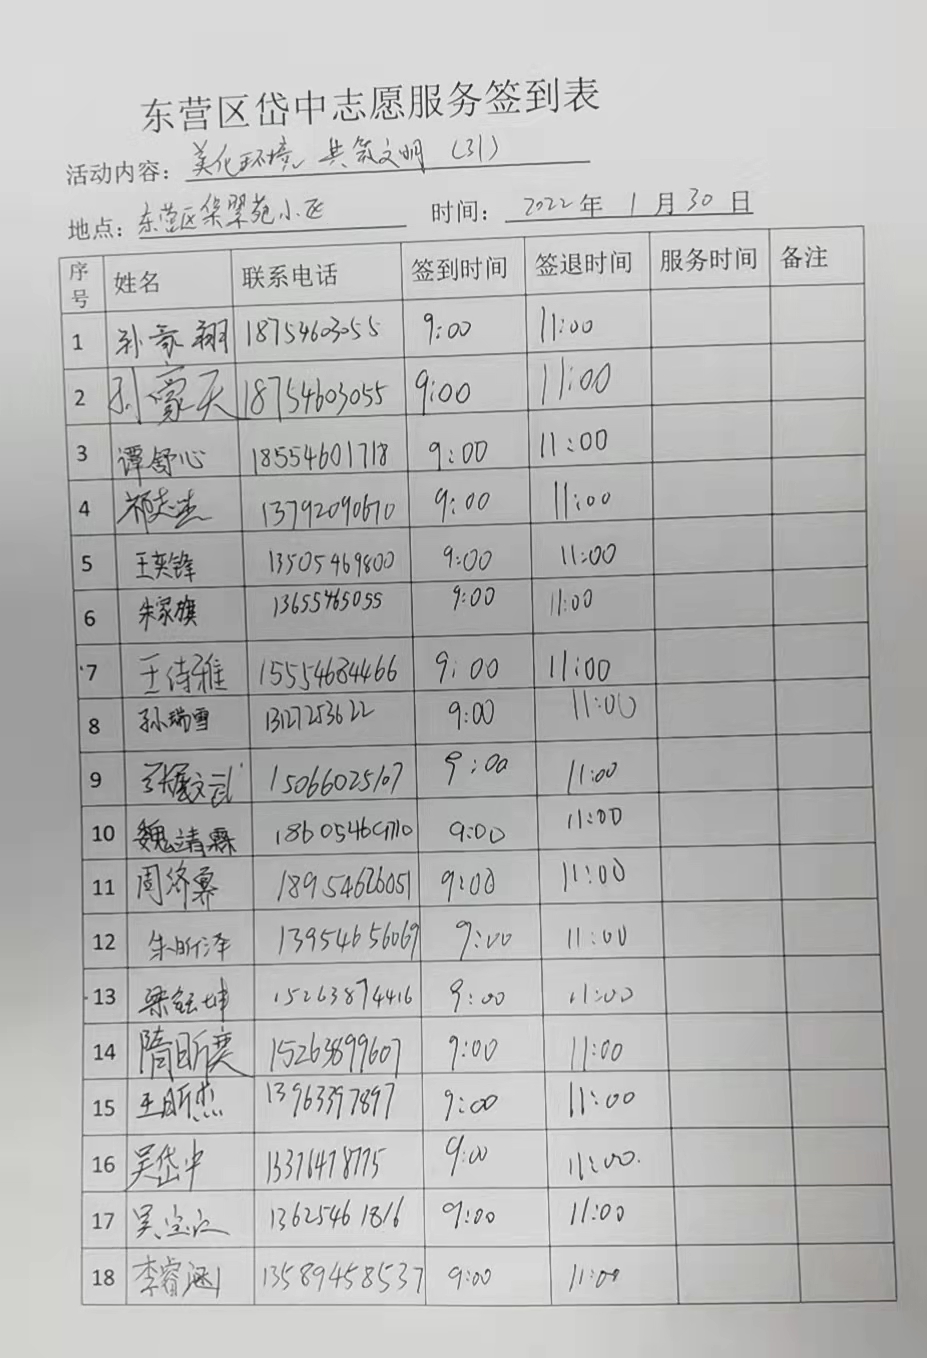 东营区岱中志愿服务签到表
活动内容：美化环境、共筑文明（31）
地点：东营区保翠苑小区 时间：2022年1月30日
序号 姓名 联系电话 签到时间 签退时间 服务时间 备注
1 孙豪翔 18754603055 9:00 11:00
2 孙蒙天 18754603055 9:00 11:00
3 谭舒心 18554601718 9:00 11:00
4 祁志杰 13792090670 9:00 11:00
5 王奕锋 13505469800 9:00 11:00
6 朱家旗 13655465055 9:00 11:00
7 王诗雅 15554684466 9:00 11:00
8 孙瑞雪 13127253622 9:00 11:00
9 张文武 15066025107 9:00 11:00
10 魏靖霖 9:00 11:00
11 周济冪 18954626051 9:00 11:00
12 朱昕泽 13954656069 9:00 11:00
13 梁钰坤 15263874416 9:00 11:00
14 隋昕奕 15263899607 9:00 11:00
15 王昕杰 13963397897 9:00 11:00
16 吴岱中 13376478775 9:00 11:00.
17 吴宝江 13625461816 9:00 11:00
18 李睿涵 13589458537 9:00 11:00